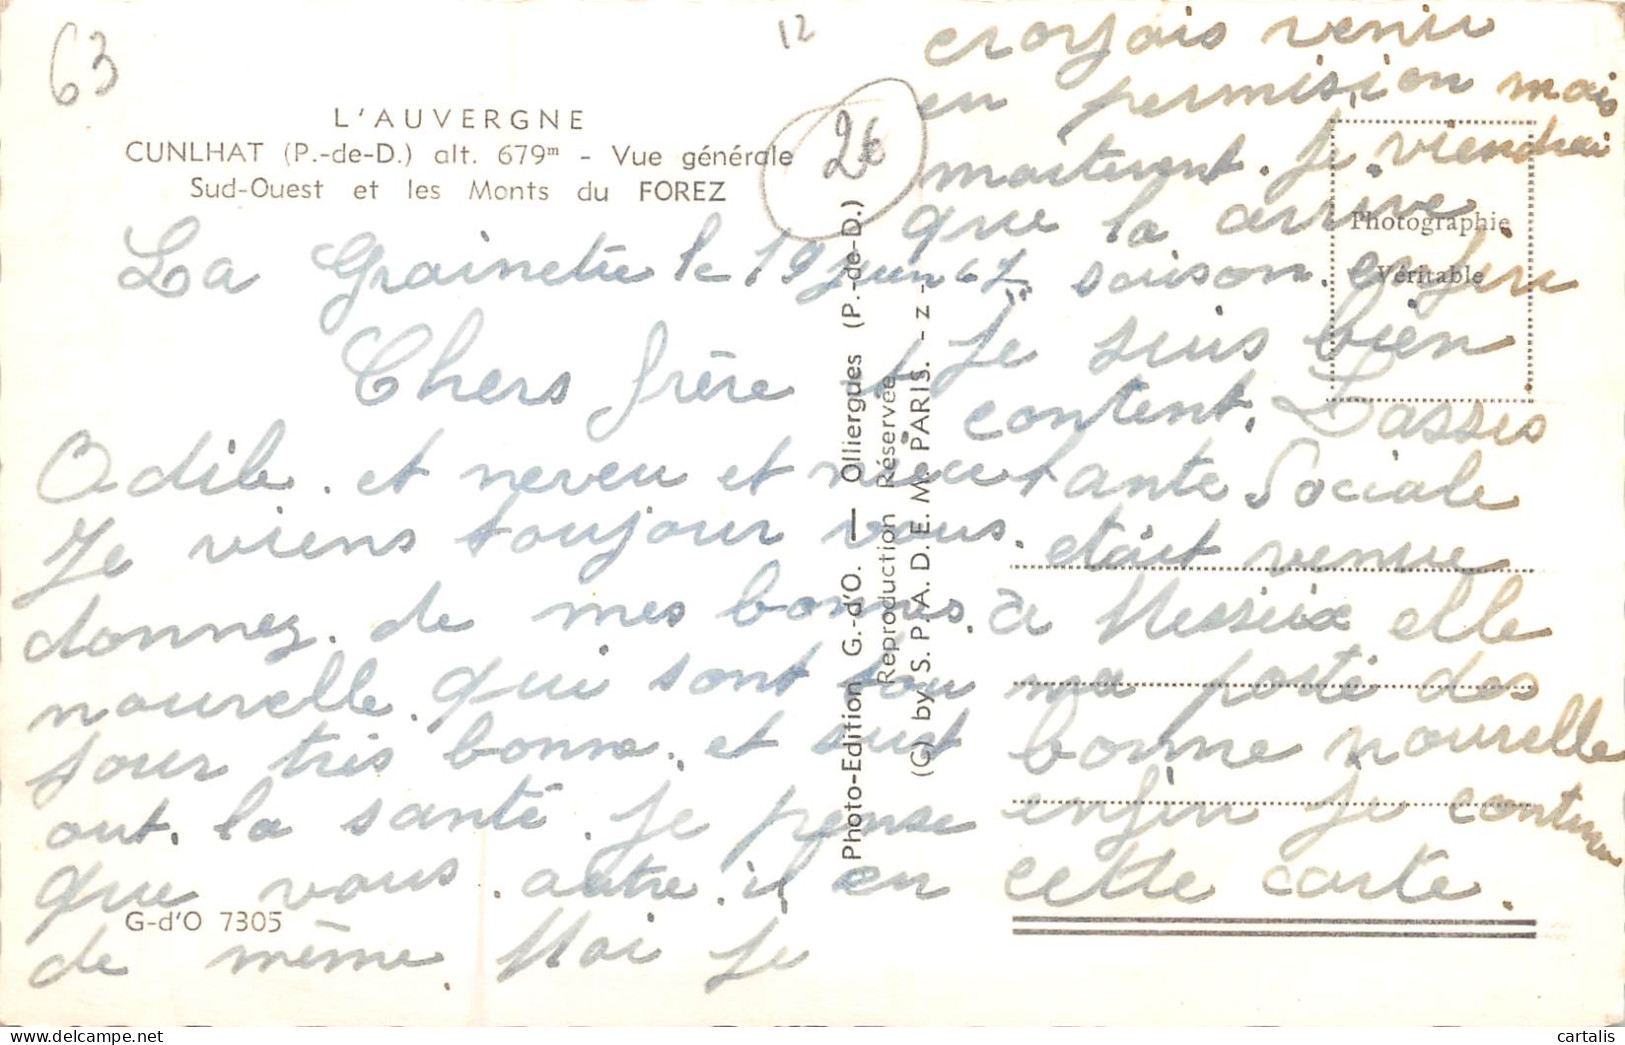 63
12
2€
L'AUVERGNE
CUNLHAT (P.-de-D.) alt. 679m - Vue générale
Sud-Ouest et les Monts du FOREZ
La Grainetie le 19 juin 67
Chers frère et
Odile. et neveu et niece
Je viens toujour vous.
donnez. de mes bonnes.
nouvelle. qui sont tou
jour très bonne. et surt
out. la santé. Je pense
que vous. autre. il en
de même. Moi je
croyais venir
en permision mais
maitenent. Je viendrai
que la arrive
saison. enfin
Je suis bien
content. L'assis
tante Sociale
etait venue
a Messeix elle
ma porté des
bonne nouvelle
enfin je continu
cette carte.
Photographie
Véritable
Photo-Edition G.-d'O. — Olliergues (P.-de-D.)
Reproduction Réservée
(G) by S.P.A.D.E.M. PARIS. - z -
G-d'O 7305
cartalis